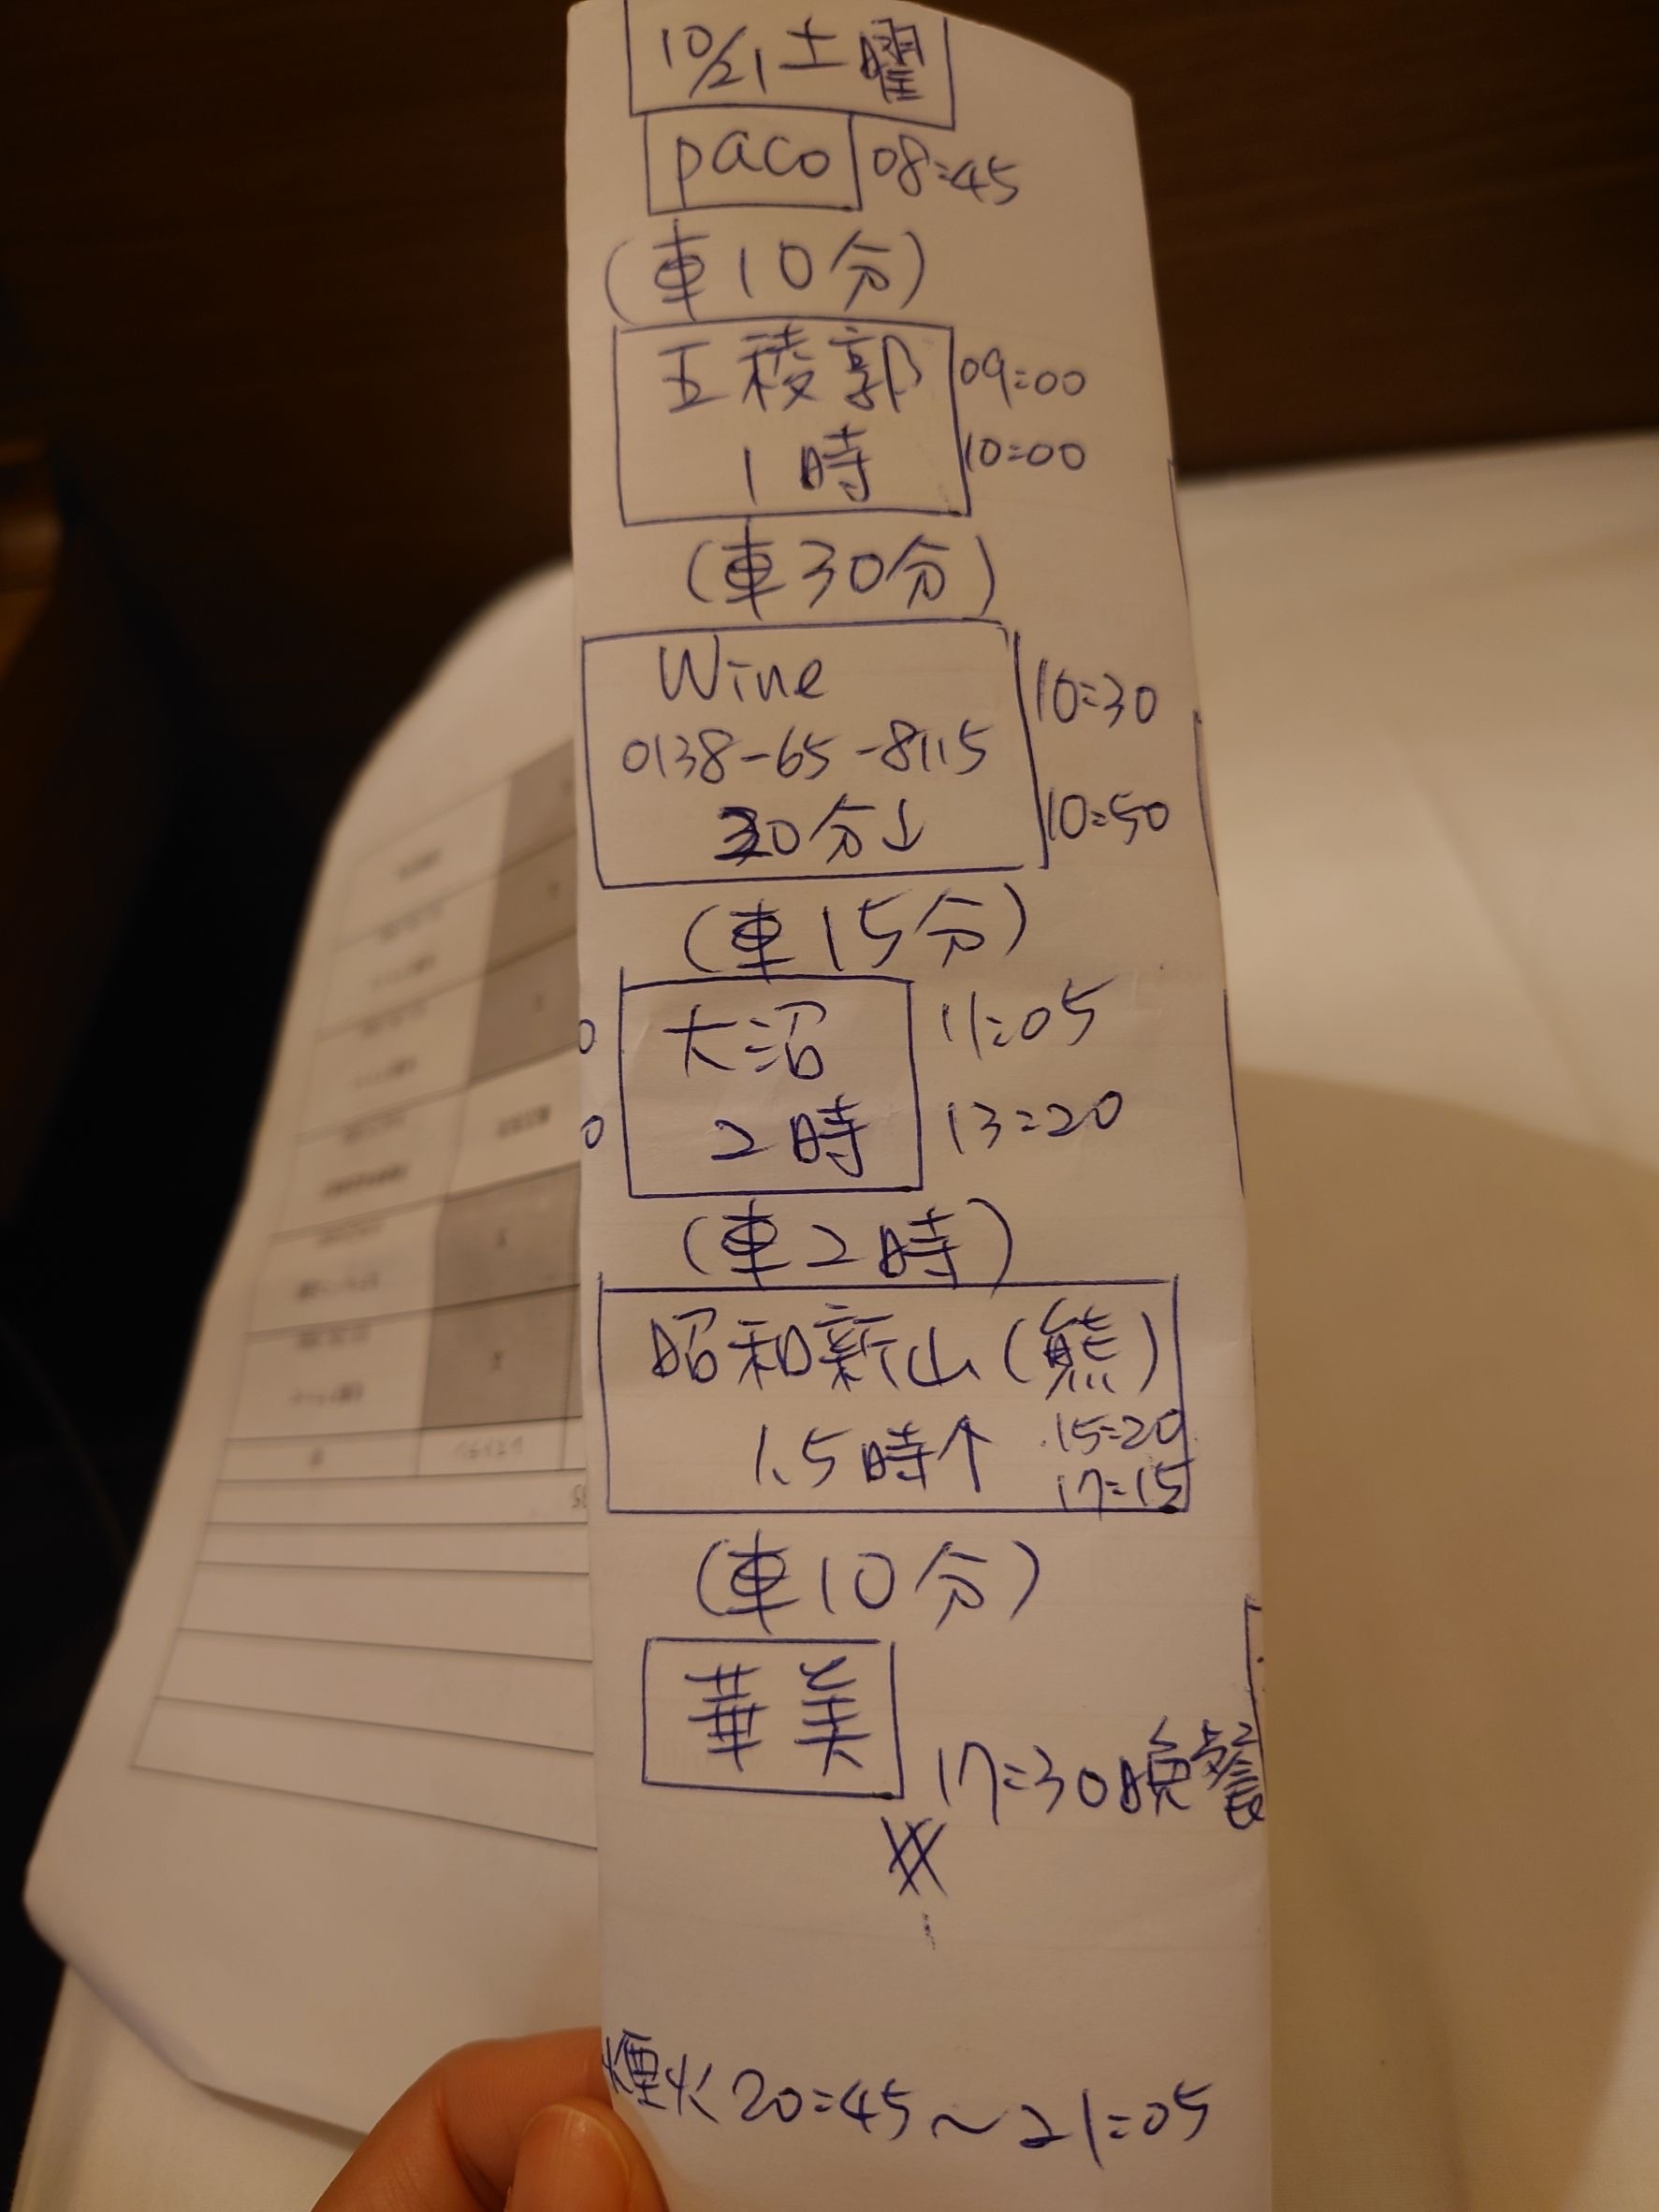 10/21 土曜
paco 08:45
(車10分)
五稜郭 09:00
1時 10:00
(車30分)
Wine 10:30
0138-65-8115
20分↓ 10:50
(車15分)
大沼 11:05
2時 13:20
(車2時)
昭和新山(熊)
1.5時↑ 15:20
17:15
(車10分)
華美
17:30晚餐
煙火20:45~21:05